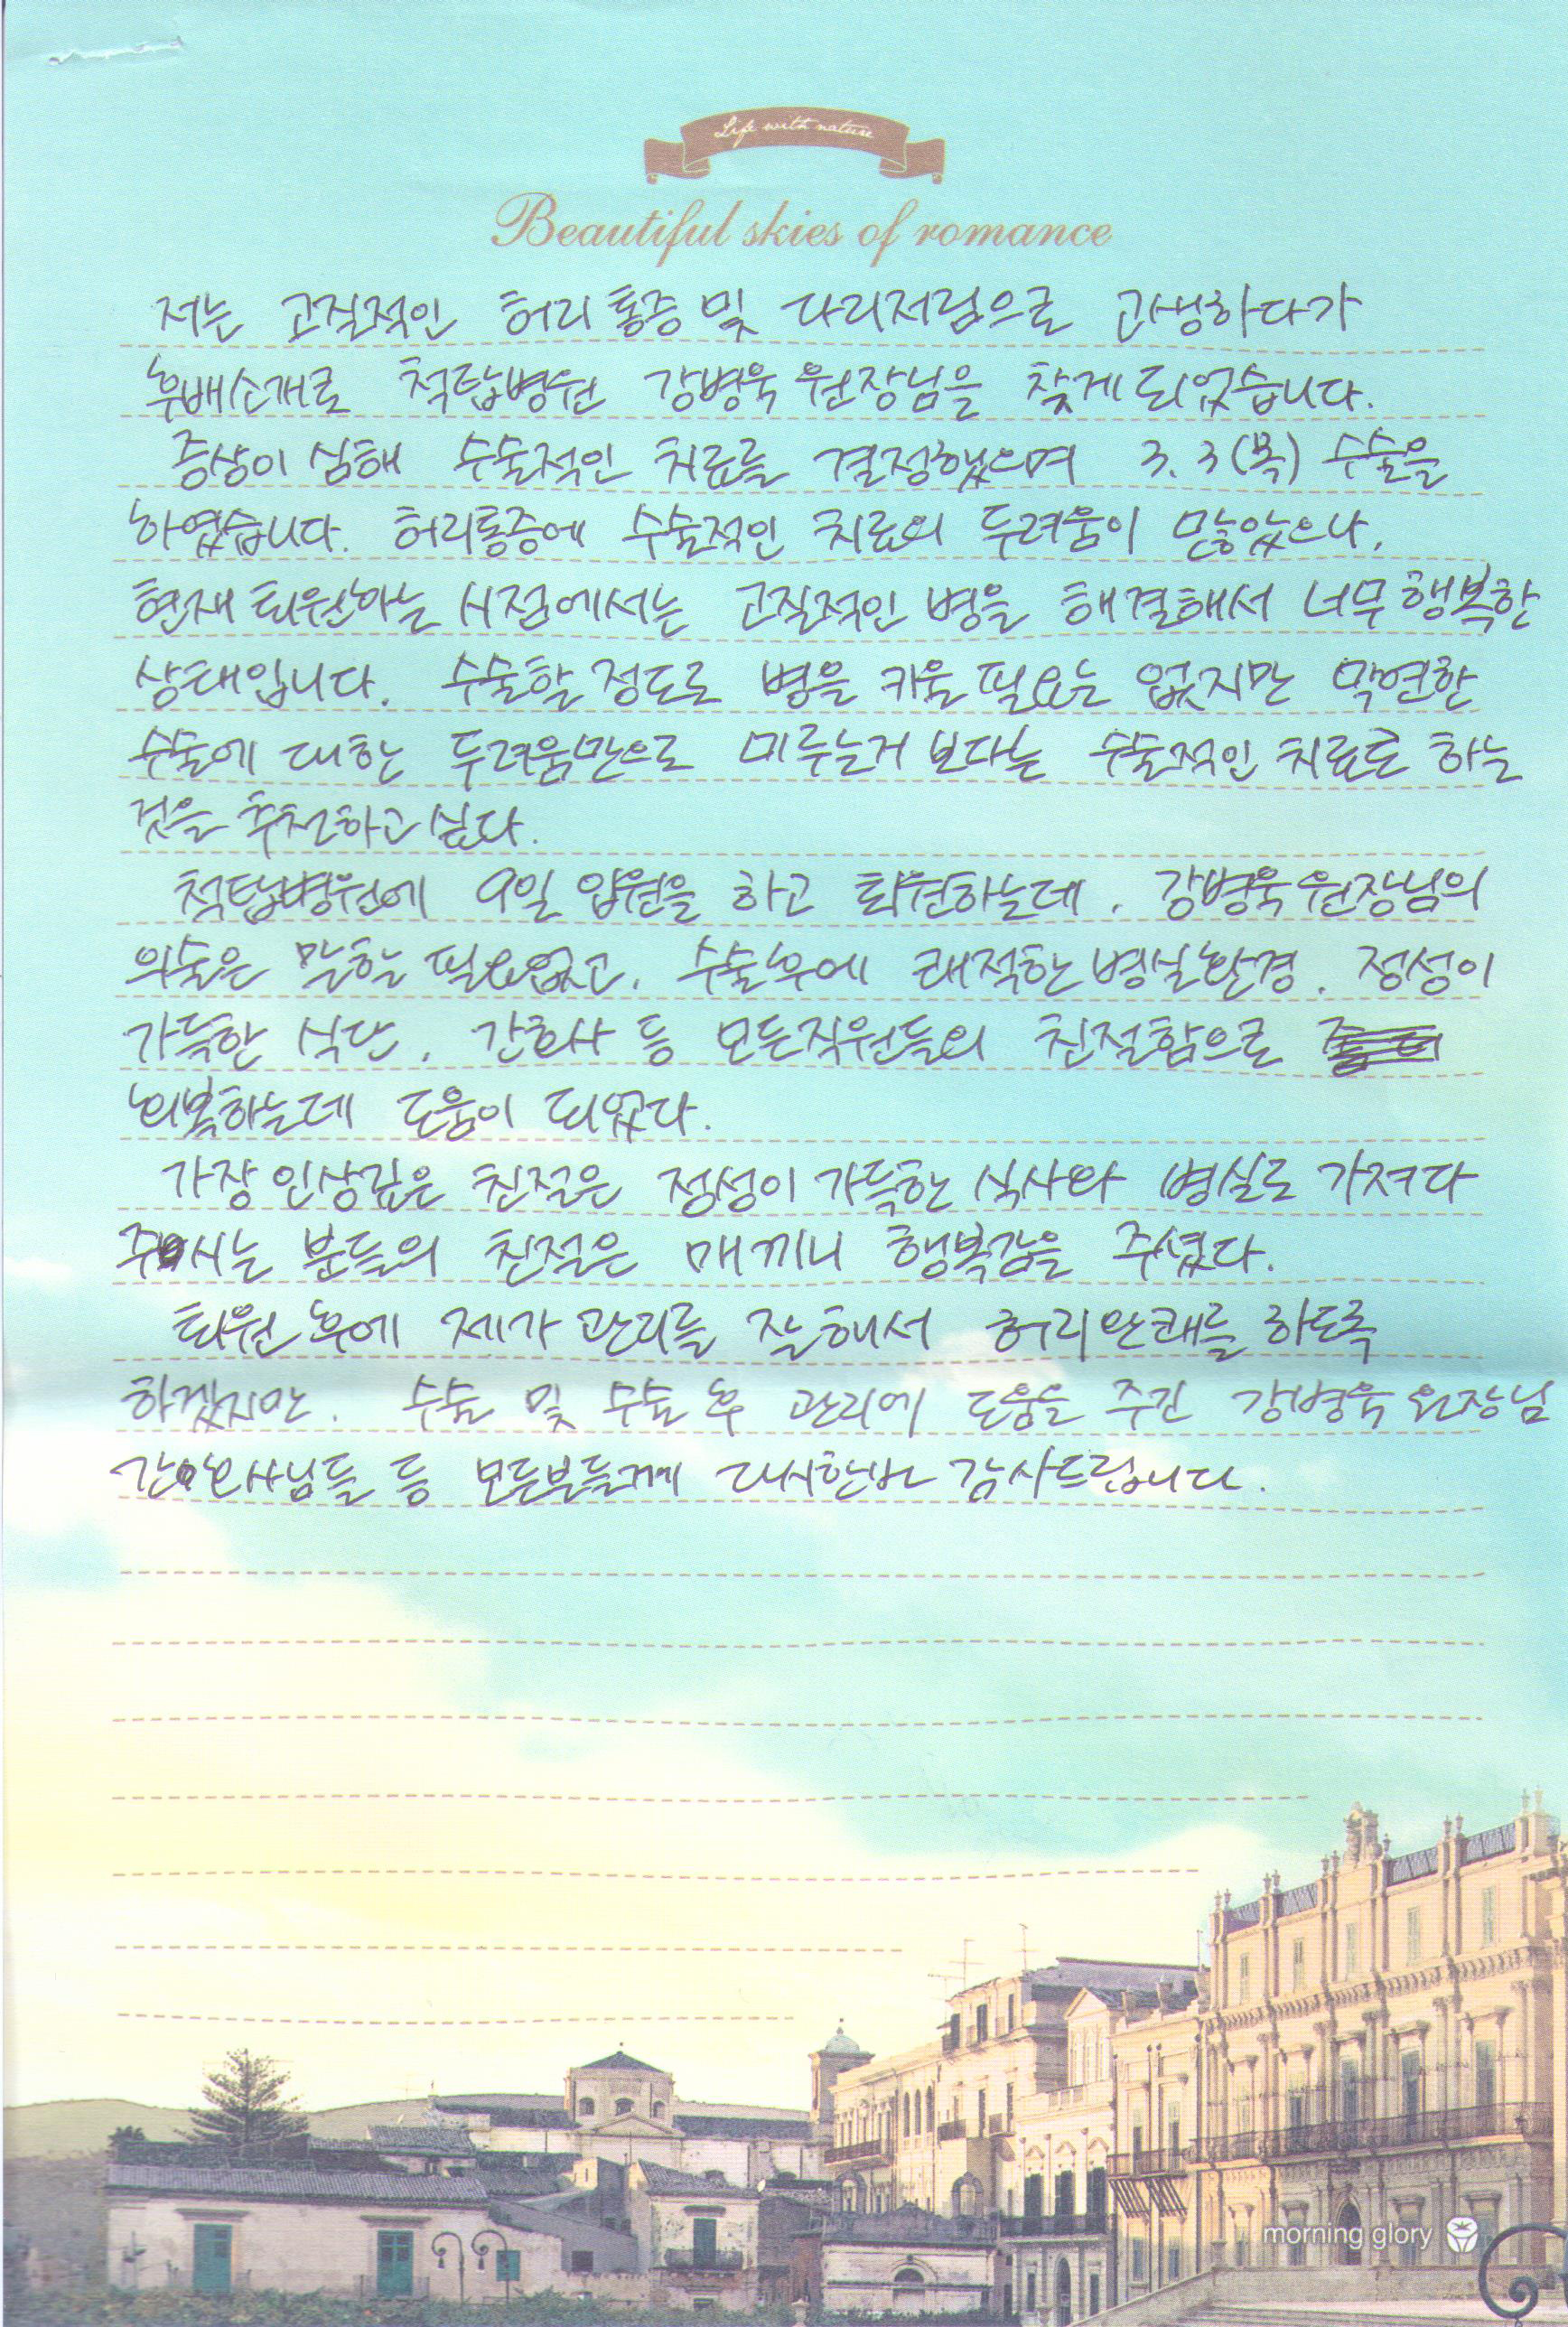 Life with nature
Beautiful skies of romance
저는 고질적인 허리통증 및 다리저림으로 고생하다가
후배소개로 척탑병원 강병욱 원장님을 찾게 되었습니다.
증상이 심해 수술적인 치료를 결정했으며 3.3(목) 수술을
하였습니다. 허리통증에 수술적인 치료의 두려움이 많았으나,
현재 퇴원하는 시점에서는 고질적인 병을 해결해서 너무 행복한
상태입니다. 수술할 정도로 병을 키울 필요는 없지만 막연한
수술에 대한 두려움만으로 미루는거 보다는 수술적인 치료를 하는
것을 추천하고 싶다.
척탑병원에 9일 입원을 하고 퇴원하는데, 강병욱 원장님의
의술은 말할 필요없고, 수술후에 쾌적한 병실환경, 정성이
가득한 식단, 간호사 등 모든직원들의 친절함으로
회복하는데 도움이 되었다.
가장 인상깊은 친절은 정성이 가득한 식사와 병실로 가져다
주시는 분들의 친절은 매끼니 행복감을 주셨다.
퇴원 후에 제가 관리를 잘해서 허리완쾌를 하도록
하겠지만, 수술 및 수술 후 관리에 도움을 주신 강병욱 원장님
간호사님들 등 모든분들께 다시한번 감사드립니다.
morning glory